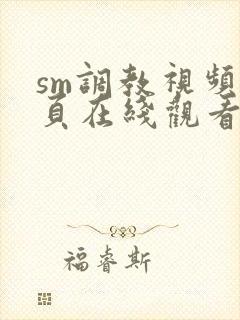 sm調教視頻
頁在綫觀看
福睿斯